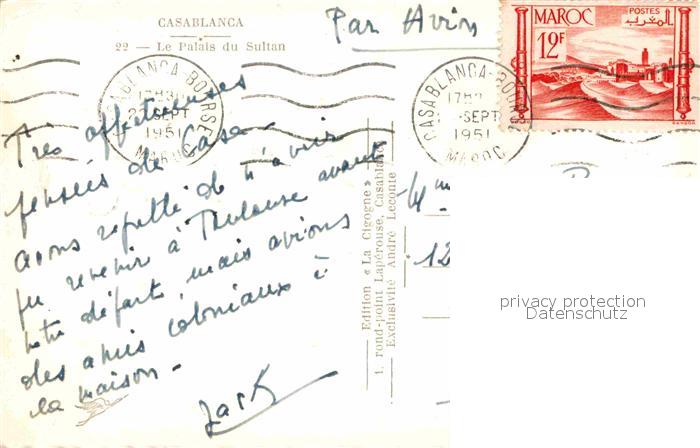 CASABLANCA
22 — Le Palais du Sultan
Par Avion
MAROC POSTES المغرب
12F
CASABLANCA-BOURSE
17H3
SEPT
1951
MAROC
CASABLANCA-BOURSE
17H3
-SEPT
1951
MAROC
Très affectueuses
pensées de Casa -
avons regretté de n'avoir
pu revenir à Toulouse avant
notre départ, mais avions
des amis coloniaux à
la maison -
Jack
Edition « La Cigogne »
1, rond-point Lapérouse, Casablanca
Exclusivité André Leconte
12
privacy protection
Datenschutz